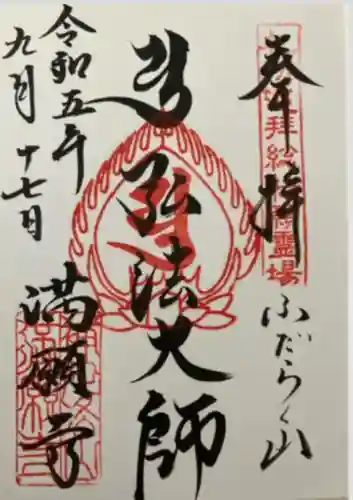 奉拝
ふだらく山
弘法大師
令和五年
九月十七日
満願寺
拝
霊場